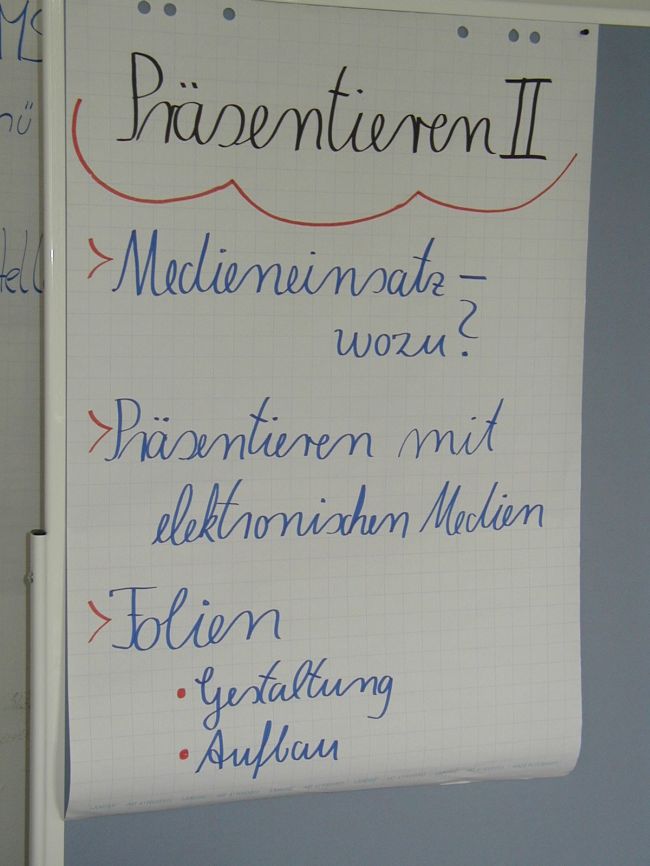 Präsentieren II
> Medieneinsatz –
wozu?
> Präsentieren mit
elektronischen Medien
> Folien
• Gestaltung
• Aufbau